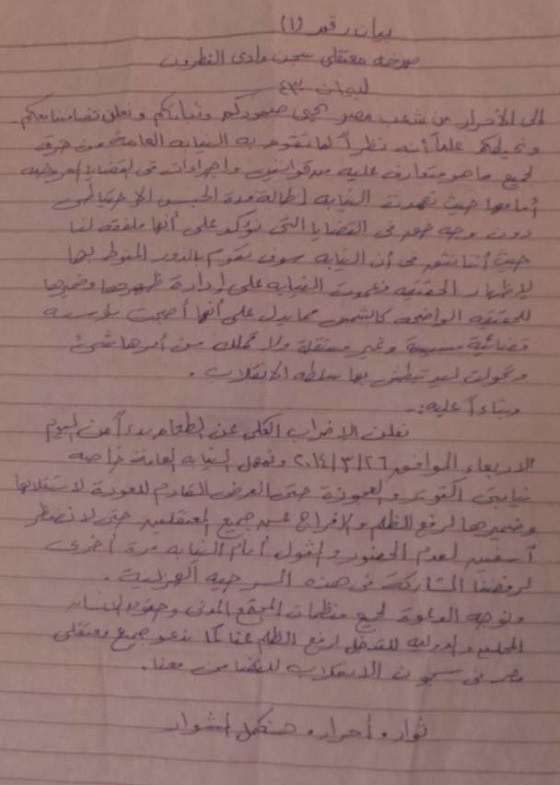 بيان رقم (١)
صرخة معتقلى سجن وادى النطرون
ليمان ٤٣٠
إلى الأحرار من شعب مصر نحيى صمودكم وثباتكم ونعلن تضامننا معكم
ونحيطكم علماً أنه نظراً لما تقوم به النيابه العامة من خرق
لجميع ما هو متعارف عليه من قوانين واجراءات فى القضايا المعروضه
أمامها حيث تعمدت النيابه إطالة مدة الحبس الإحتياطى
دون وجه حق فى القضايا التى نؤكد على أنها ملفقه لنا
حيث أننا نثق فى أن النيابه سوف تقوم بالدور المنوط بها
لإظهار الحقيقه فعمدت النيابه على إدارة ظهرها وضميرها
للحقيقه الواضحه كالشمس مما يدل على أنها أصبحت مؤسسه
قضائية مسيسة وغير مستقلة ولا تملك من أمرها شئ
وتحولت ليد تبطش بها سلطه الانقلاب .
وبناءاً عليه :-
نعلن الاضراب الكلى عن الطعام بدءاً من اليوم
الاربعاء الموافق ٢٠١٤/٣/٢٦ ونمهل النيابه العامة خاصه
نيابتى أكتوبر والعجوزة حتى العرض القادم للعودة لاستقلالها
وضميرها لرفع الظلم والافراج عن جميع المعتقلين حتى لا نضطر
آسفين لعدم الحضور والمثول أمام النيابه مرة أخرى
لرفضنا المشاركة فى هذه المسرحيه الهزلية .
ونوجه الدعوة لجميع منظمات المجتمع المدنى وحقوق الانسان
المحليه والدوليه للتدخل لرفع الظلم عنا كما ندعو جميع معتقلى
مصر فى سجون الانقلاب للتضامن معنا .
ثوار أحرار هنكمل المشوار